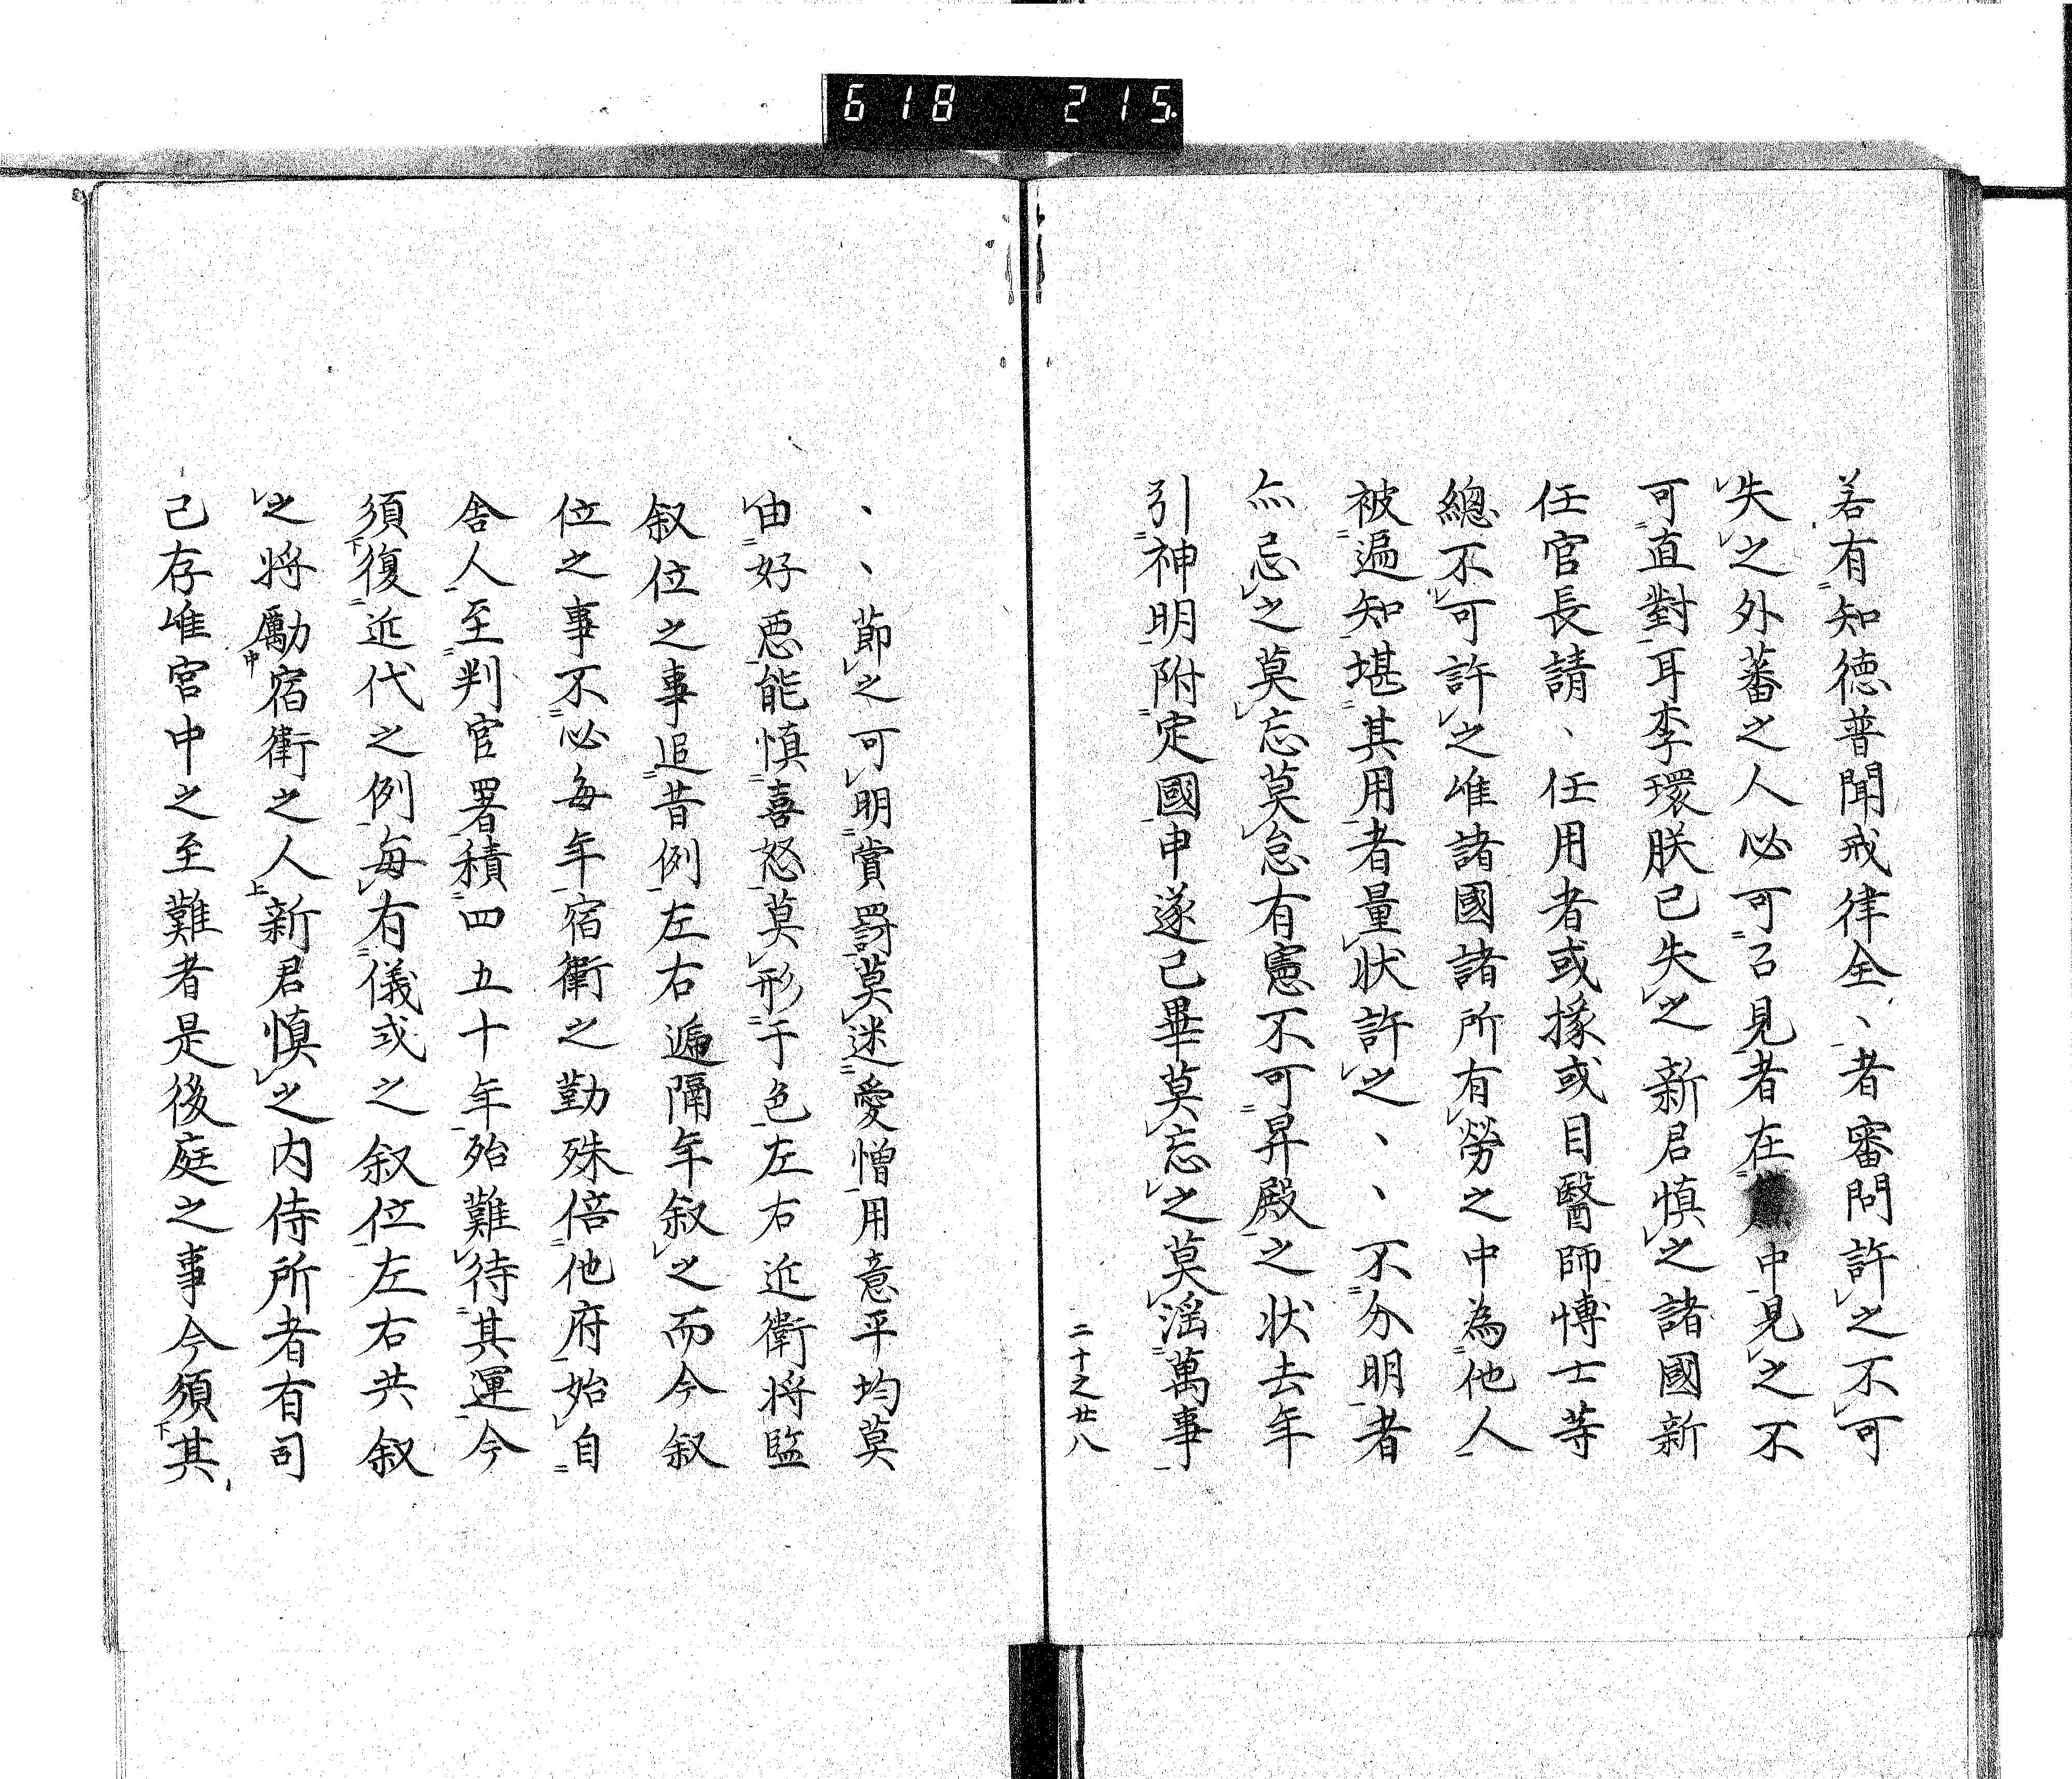 618 215
若有知徳普聞戒律全、者審問許之不可
失之外蕃之人必可召見者在中見之不
可直對耳李環朕已失之新君慎之諸國新
任官長請、任用者或掾或目醫師博士等
總不可許之唯諸國諸所有勞之中為他人
被遍知堪其用者量状許之、、不分明者
亦忌之莫忘莫怠有憲不可昇殿之状去年
引神明附定國申遂已畢莫忘之莫滛萬事
二十之廿八
、、節之可明賞罰莫迷愛憎用意平均莫
由好悪能慎喜怒莫形于色左右近衛将監
叙位之事追昔例左右遍隔年叙之而今叙
位之事不必毎年宿衛之勤殊倍他府始自
舎人至判官署積四五十年殆難待其運今
須復近代之例毎有儀或之叙位左右共叙
之将勵宿衛之人新君慎之内侍所者有司
已存唯宮中之至難者是後庭之事今須其